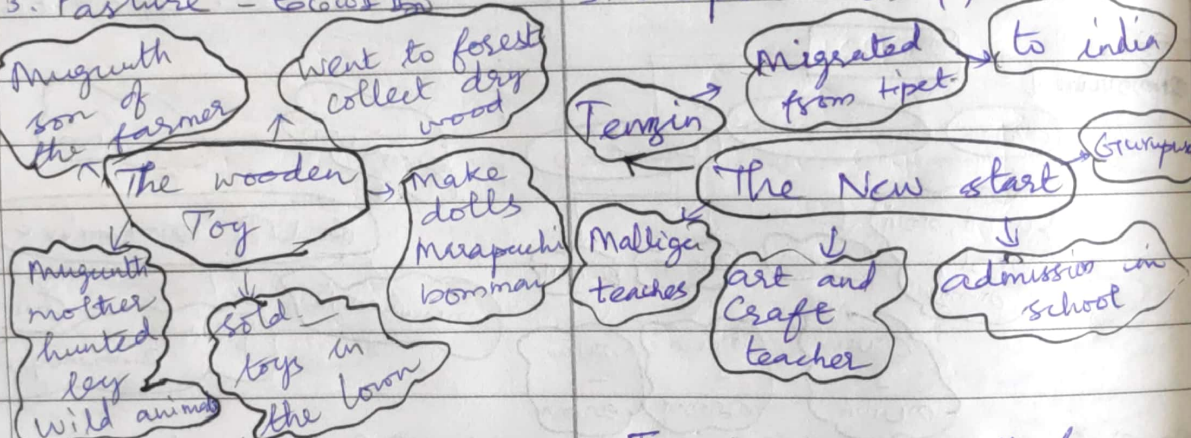 3. Pasture -
Muguuth
son of
the farmer
went to forest
collect dry
wood
The wooden
Toy
Make
dolls
Marapachi
bommai
Muguuth
mother
hunted
by
wild animals
sold
toys in
the town
Tenzin
Migrated
from tipet.
to india
The New start
Gurupu
Malliga
teaches
art and
Craft
teacher
admission in
school